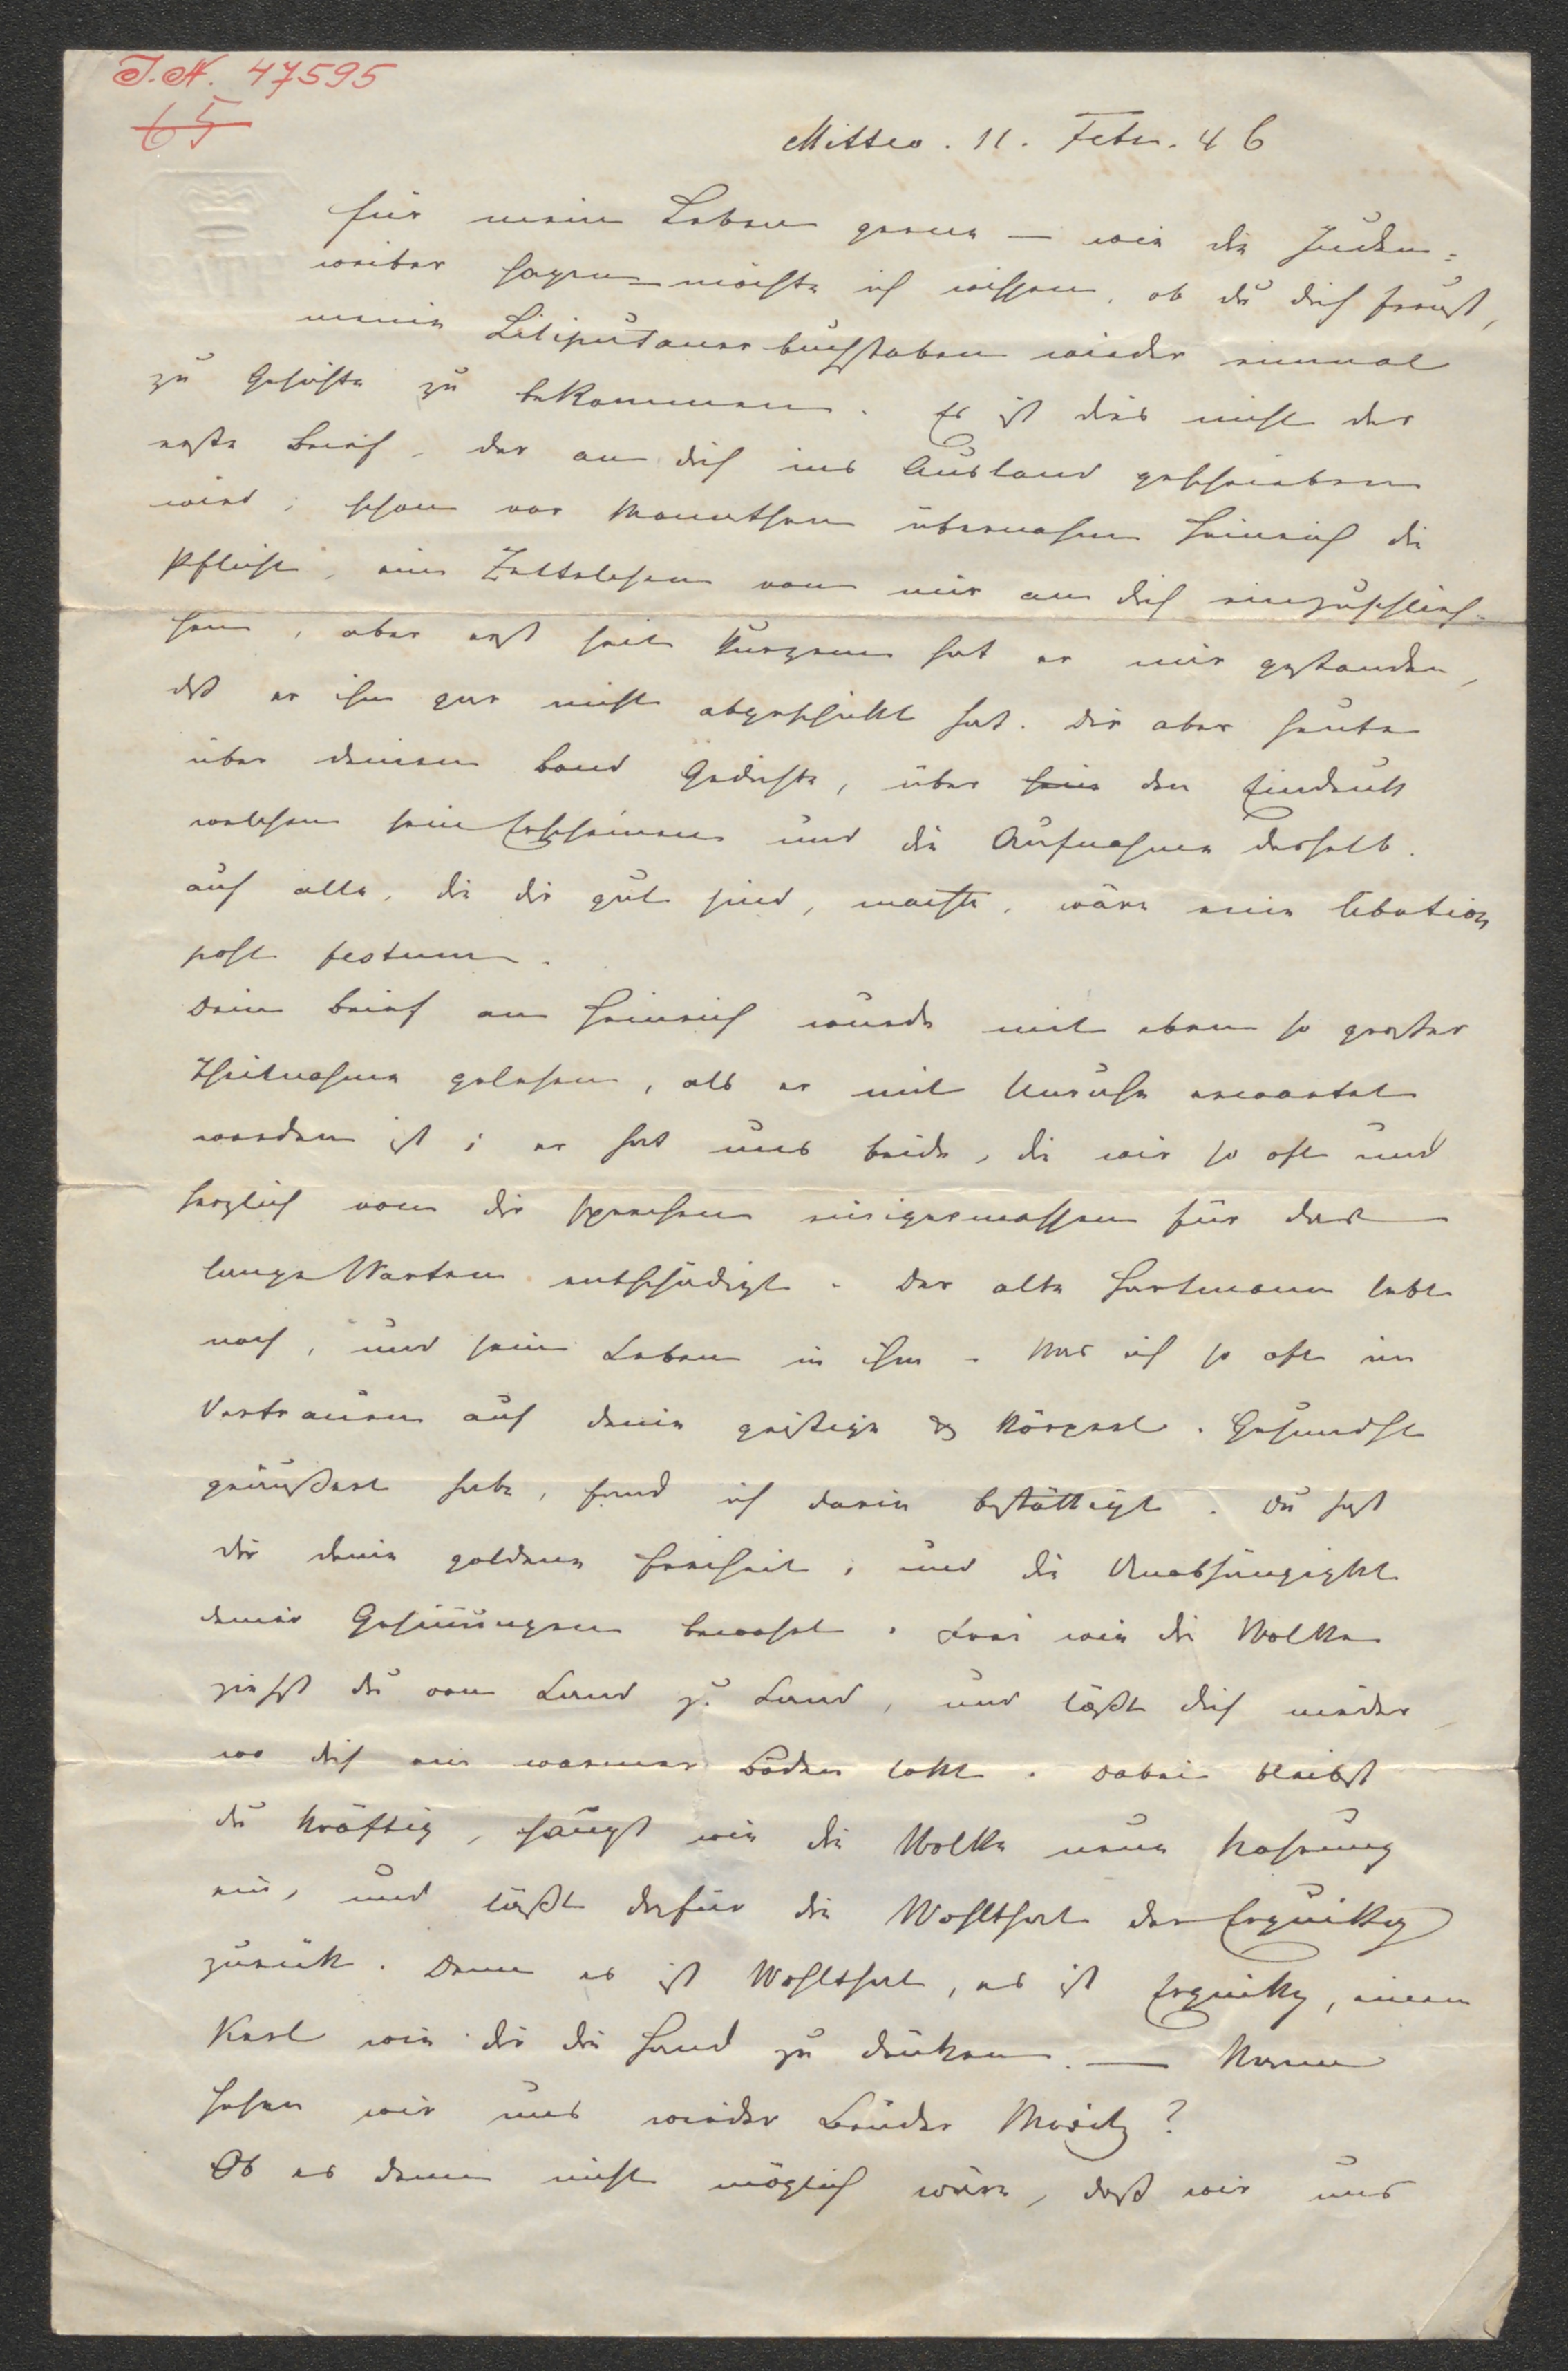 J. N. 47595
65
Mittw. 11. Febr. 46
Für mein Leben gerne – wie die Juden=
weiber sagen – möchte ich wissen, ob du dich freust,
meine Liliputanerbuchstaben wieder einmal
zu Gesichte zu bekommen. Es ist dies nicht der
erste Brief, der an dich ins Ausland geschrieben
wird; schon vor Monathen übernahm Heinrich die
Pflicht, ein Zettelchen von mir an dich einzuschlies=
sen, aber erst seit Kurzem hat er mir gestanden,
dß er ihn gar nicht abgeschickt hat. Dir aber heute
über deinen Band Gedichte, über sein den Eindruck
welchen sein Erscheinen und die Aufnahme desselb.
auf alle, die dir gut sind, machte, wäre eine libation
post festum.
Dein Brief an Heinrich wurde mit eben so großer
Theilnahme gelesen, als er mit Unruhe erwartet
worden ist; er hat uns beide, die wir so oft und
herzlich von dir sprechen einigermassen für das
lange Warten entschädigt. Der alte Hartmann lebt
noch, und sein Leben in ihm. Was ich so oft im
Vertrauen auf deine geistige & körperl. Gesundht
geäußert habe, fand ich darin bestättigt. Du hast
dir deine goldene Freiheit, und die Unabhängigkt
deiner Gesinnungen bewahrt. Frei wie die Wolke
ziehst du von Land zu Land, und läßt dich nieder
wo dich ein warmer Boden lokt. Dabei bleibst
du kräftig, saugst wie die Wolke neue Nahrung
ein, und läßt dafür die Wohlthat der Erquikg
zurük. Denn es ist Wohlthat, es ist Erquikg, einem
Kerl wie dir die Hand zu drüken. — Wann
sehen wir uns wieder Bruder Moritz?
Ob es denn nicht möglich wäre, daß wir uns